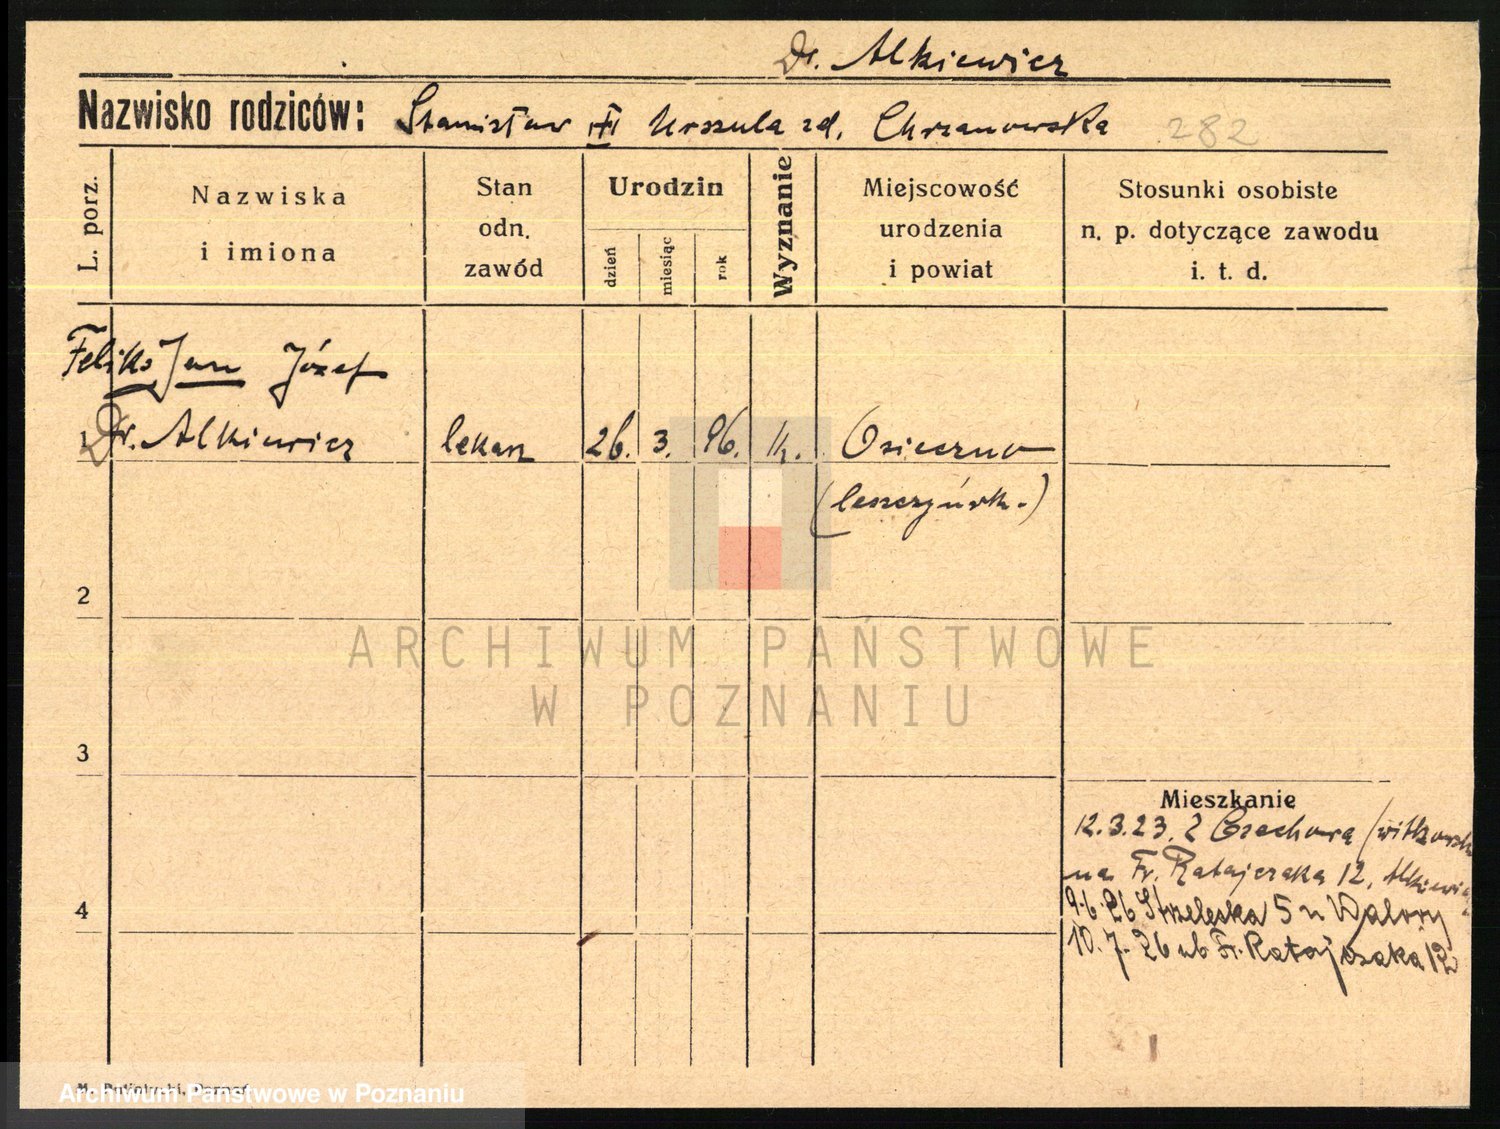 Dr. Alkiewicz
Nazwisko rodziców: Stanisław i Urszula zd. Chrzanowska 282
L. porz.
Nazwiska i imiona
Stan odn. zawód
Urodzin
dzień
miesiąc
rok
Wyznanie
Miejscowość urodzenia i powiat
Stosunki osobiste n. p. dotyczące zawodu i. t. d.
Feliks Jan Józef
Dr. Alkiewicz lekarz 26. 3. 96. rk. Osieczno
(leszczyńsk.)
2
ARCHIWUM PAŃSTWOWE
W POZNANIU
3
Mieszkanie
12.3.23. z Czechowa (witkowsk
na Fr. Ratajczaka 12, Alkiewicz
4
9.6.26 Strzelecka 5 u
10.7.26 ub Fr. Ratajczaka 12
Poznań
Archiwum Państwowe w Poznaniu